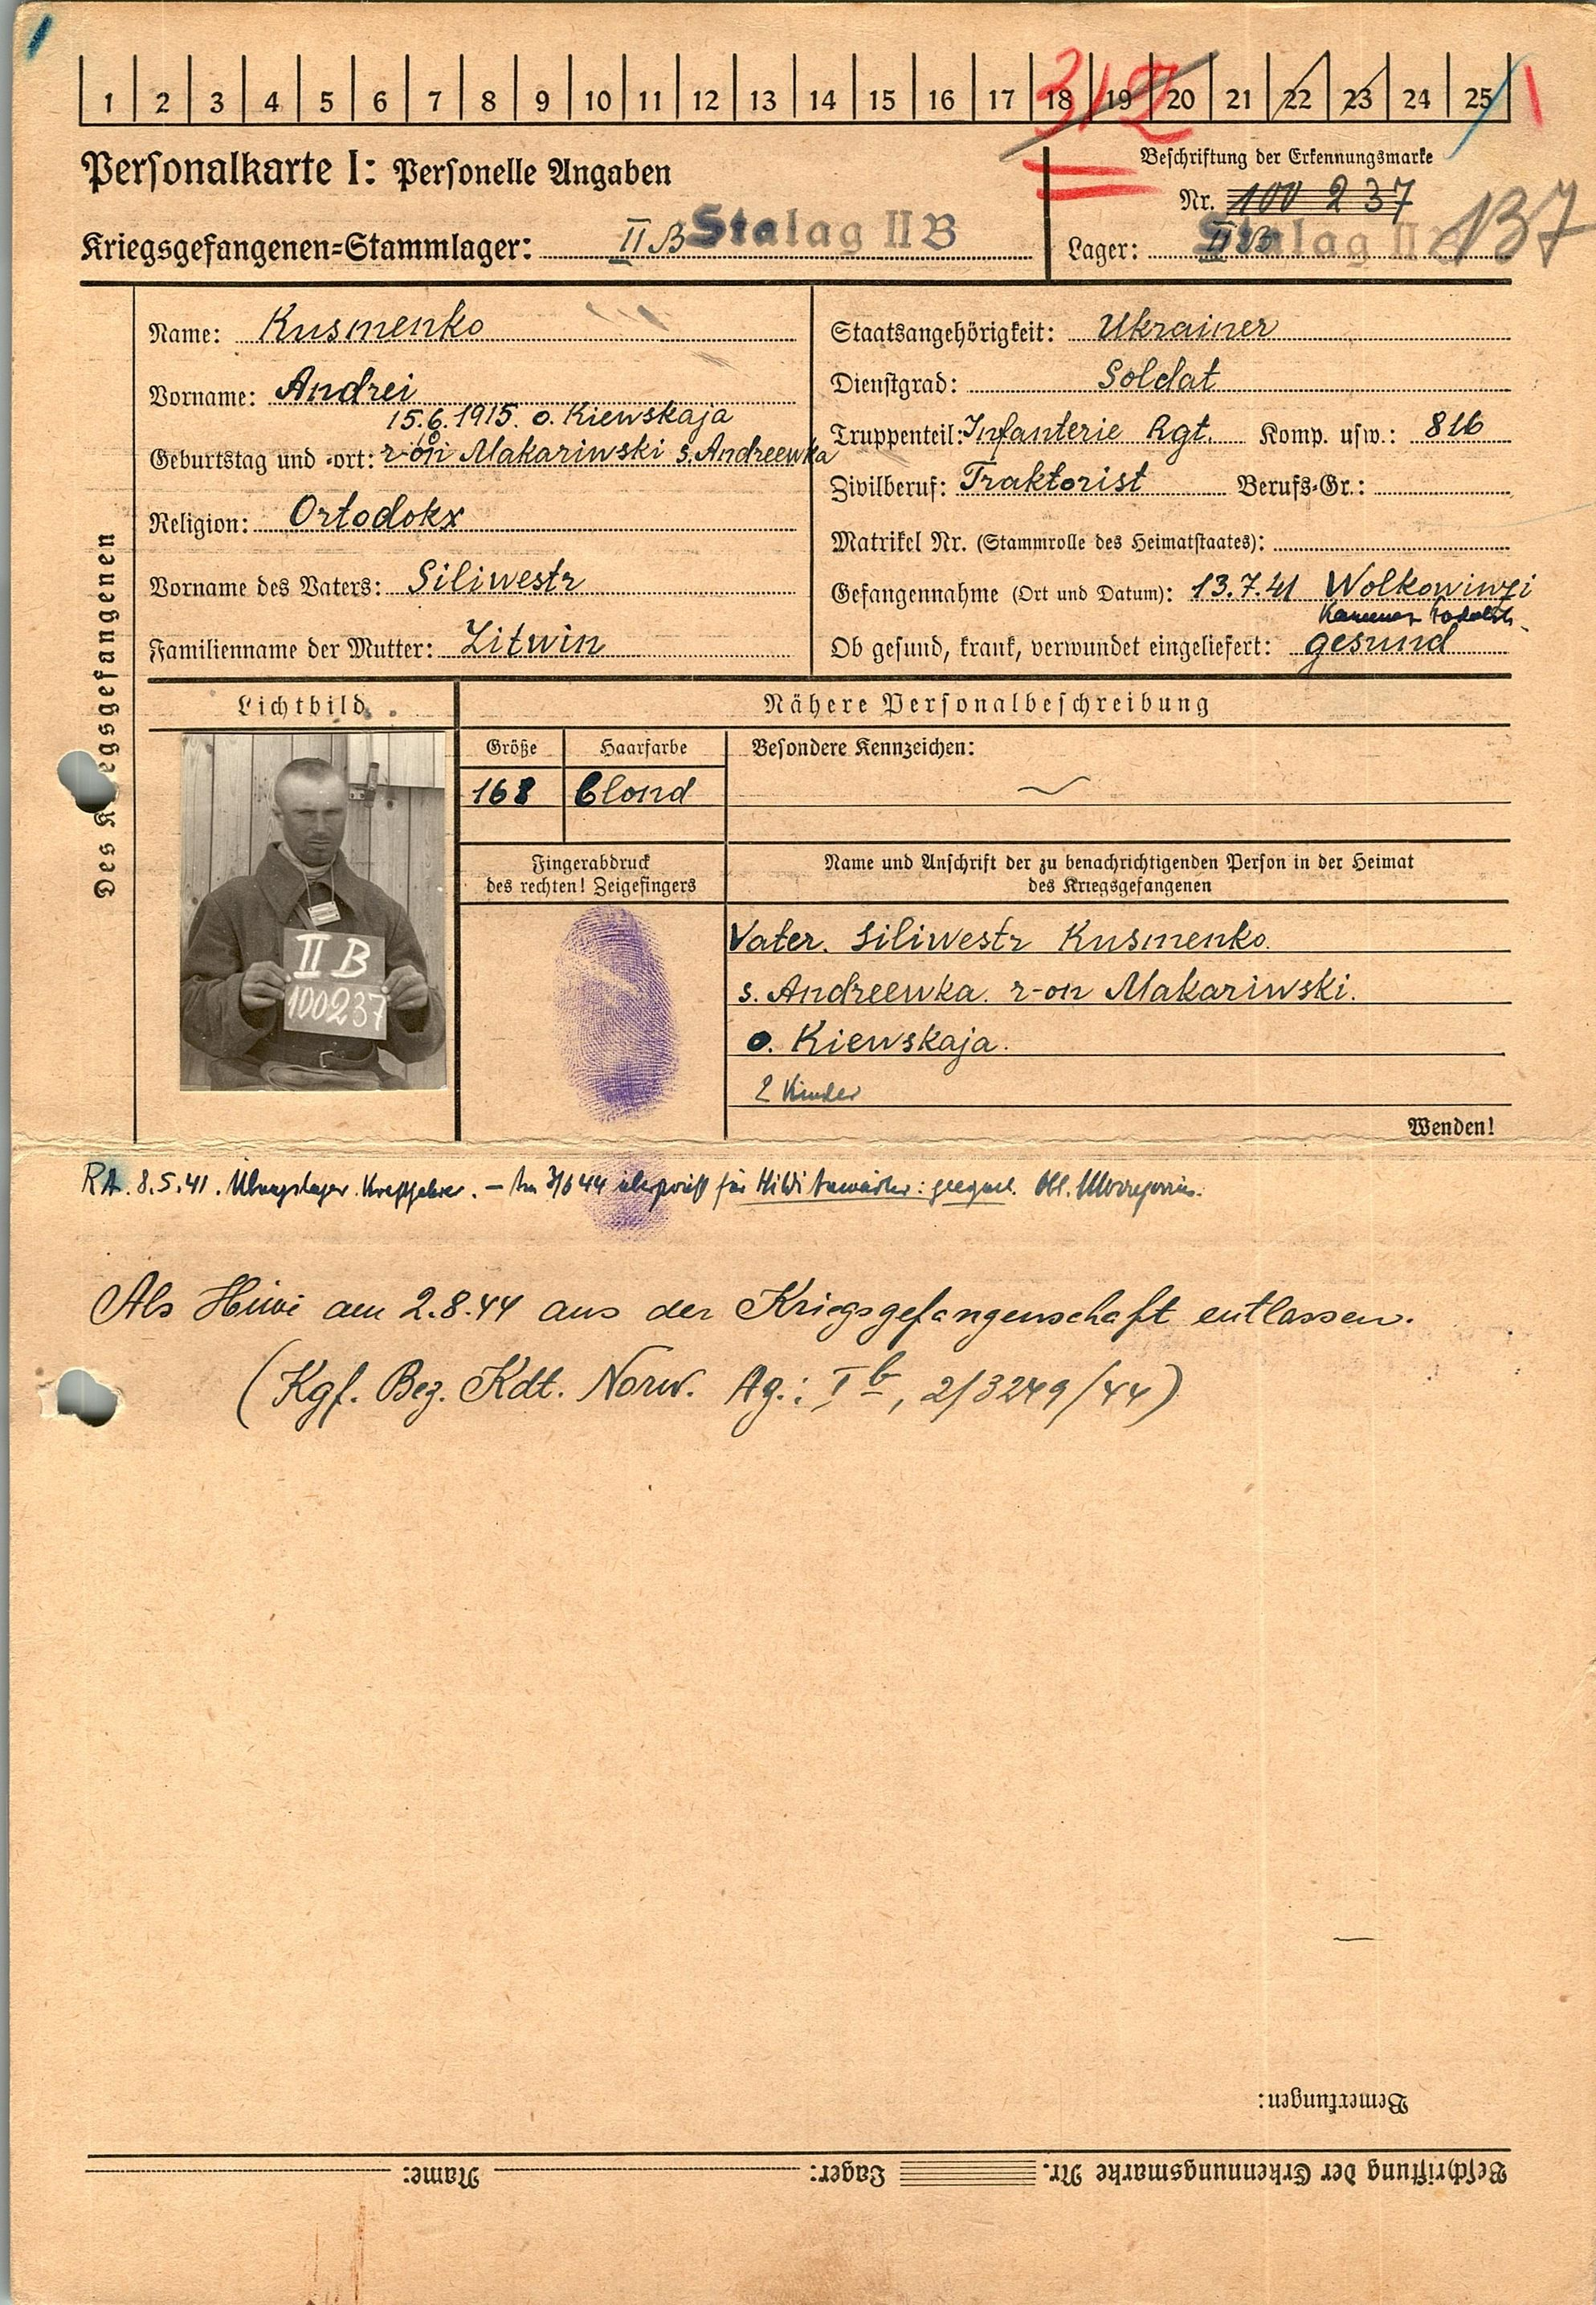 1 2 3 4 5 6 7 8 9 10 11 12 13 14 15 16 17 18 19 20 21 22 23 24 25
312
Personalkarte I: Personelle Angaben
Beschriftung der Erkennungsmarke
Nr. 100 237
137
Kriegsgefangenen=Stammlager: II B Stalag II B
Lager: II B Stalag II B
Des Kriegsgefangenen
Name: Kusmenko
Vorname: Andrei
15.6.1915. o. Kiewskaja
Geburtstag und -ort: r-on Makariwski s. Andreewka
Religion: Ortodokx
Vorname des Vaters: Siliwestr
Familienname der Mutter: Litwin
Staatsangehörigkeit: Ukrainer
Dienstgrad: Soldat
Truppenteil: Infanterie Rgt. Komp. usw.: 816
Zivilberuf: Traktorist Berufs-Gr.:
Matrikel Nr. (Stammrolle des Heimatstaates):
Gefangennahme (Ort und Datum): 13.7.41 Wolkowinzi
Ob gesund, krank, verwundet eingeliefert: gesund
Lichtbild
II B
100237
Nähere Personalbeschreibung
Größe Haarfarbe Besondere Kennzeichen:
168 blond
Fingerabdruck
des rechten! Zeigefingers
Name und Anschrift der zu benachrichtigenden Person in der Heimat
des Kriegsgefangenen
Vater. Siliwestr Kusmenko.
s. Andreewka. r-on Makariwski.
o. Kiewskaja.
2 Kinder
Wenden!
8.5.41. Kraftfahrer. – für geeignet.
Als Hiwi am 2.8.44 aus der Kriegsgefangenschaft entlassen.
(Kgf. Bez. Kdt. Norw. Ag.: I b, 2/3249/44)
Bemerkungen:
Beschriftung der Erkennungsmarke Nr. Lager: Name: